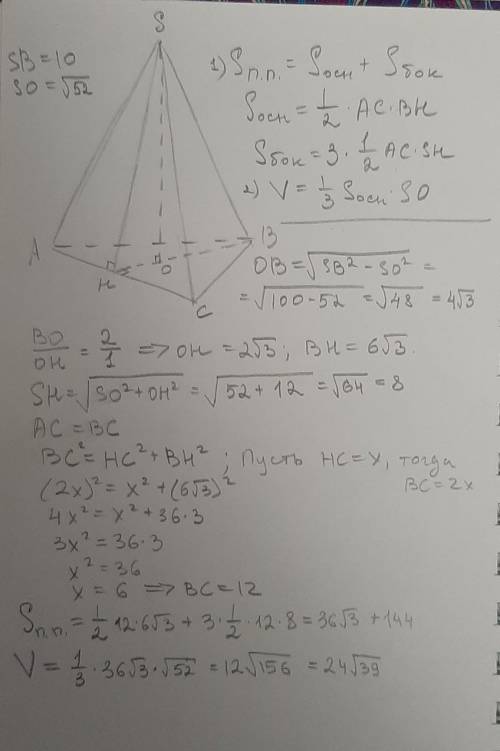 S
SB=10
SO=√52
1) Sп.п. = Sосн + Sбок
Sосн = 1/2 · AC · BH
Sбок = 3 · 1/2 AC · SH
2) V = 1/3 Sосн · SO
A
B
O
H
C
OB = √(SB² - SO²) =
= √(100-52) = √48 = 4√3
BO/OH = 2/1 => OH = 2√3; BH = 6√3.
SH = √(SO² + OH²) = √(52 + 12) = √64 = 8
AC = BC
BC² = HC² + BH²; Пусть HC = x, тогда
BC = 2x
(2x)² = x² + (6√3)²
4x² = x² + 36·3
3x² = 36·3
x² = 36
x = 6 => BC = 12
Sп.п. = 1/2 · 12 · 6√3 + 3 · 1/2 · 12 · 8 = 36√3 + 144
V = 1/3 · 36√3 · √52 = 12√156 = 24√39